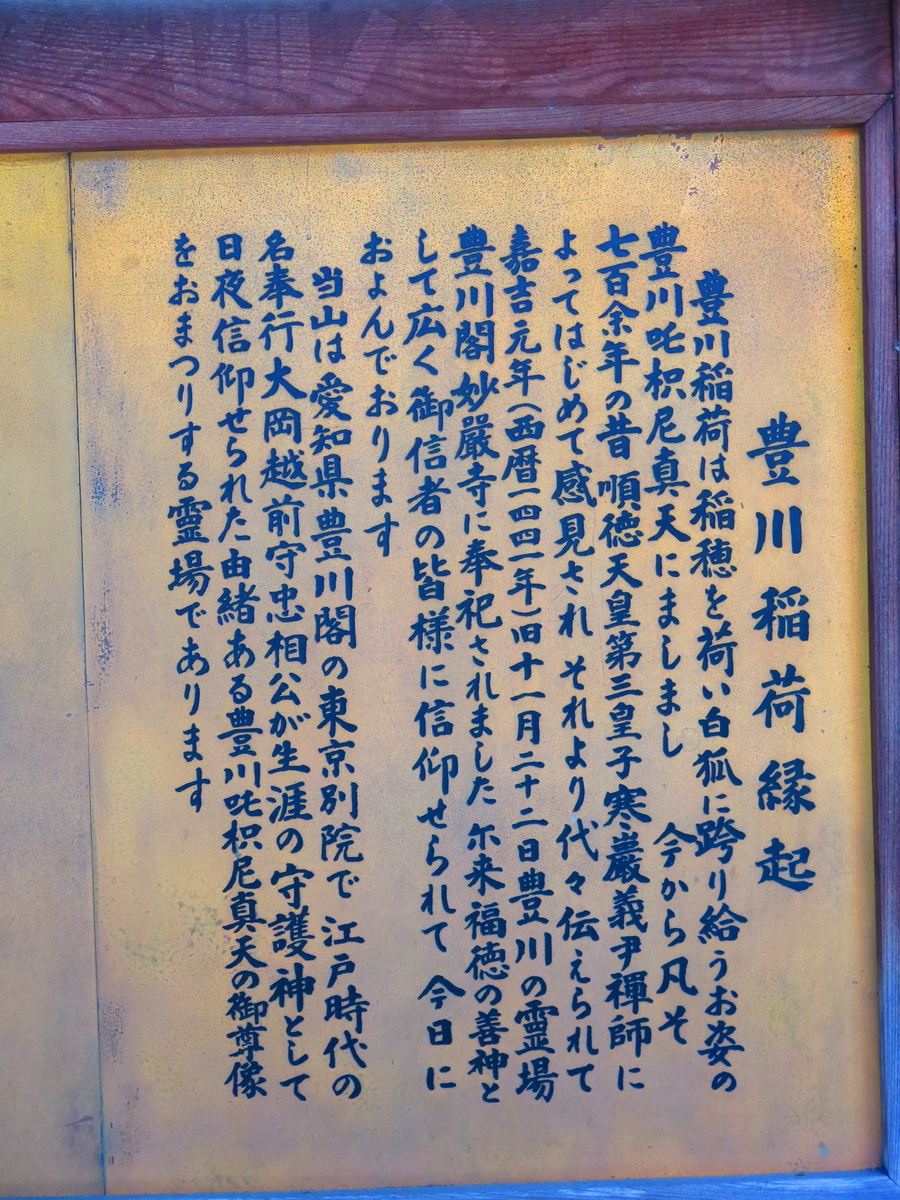 豊川稲荷縁起
豊川稲荷は稲穂を荷い白狐に跨り給うお姿の
豊川吒枳尼真天にましまし　今から凡そ
七百余年の昔 順徳天皇第三皇子寒巖義尹禪師に
よってはじめて感見され それより代々伝えられて
嘉吉元年(西暦一四四一年)旧十一月二十二日豊川の霊場
豊川閣妙嚴寺に奉祀されました 尓来福徳の善神と
して広く御信者の皆様に信仰せられて 今日に
およんでおります
当山は愛知県豊川閣の東京別院で 江戸時代の
名奉行大岡越前守忠相公が生涯の守護神として
日夜信仰せられた由緒ある豊川吒枳尼真天の御尊像
をおまつりする霊場であります